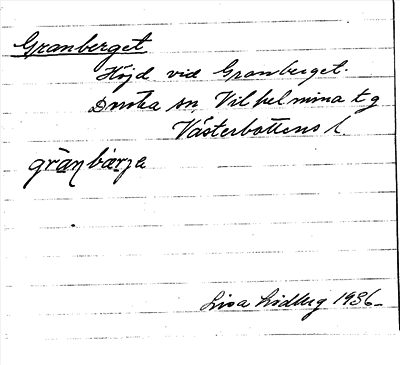 Granberget
Höjd vid Granberget.
Dorotea sn Vilhelmina tg
Västerbottens l.
gränbärja
Lisa Lidberg 1936